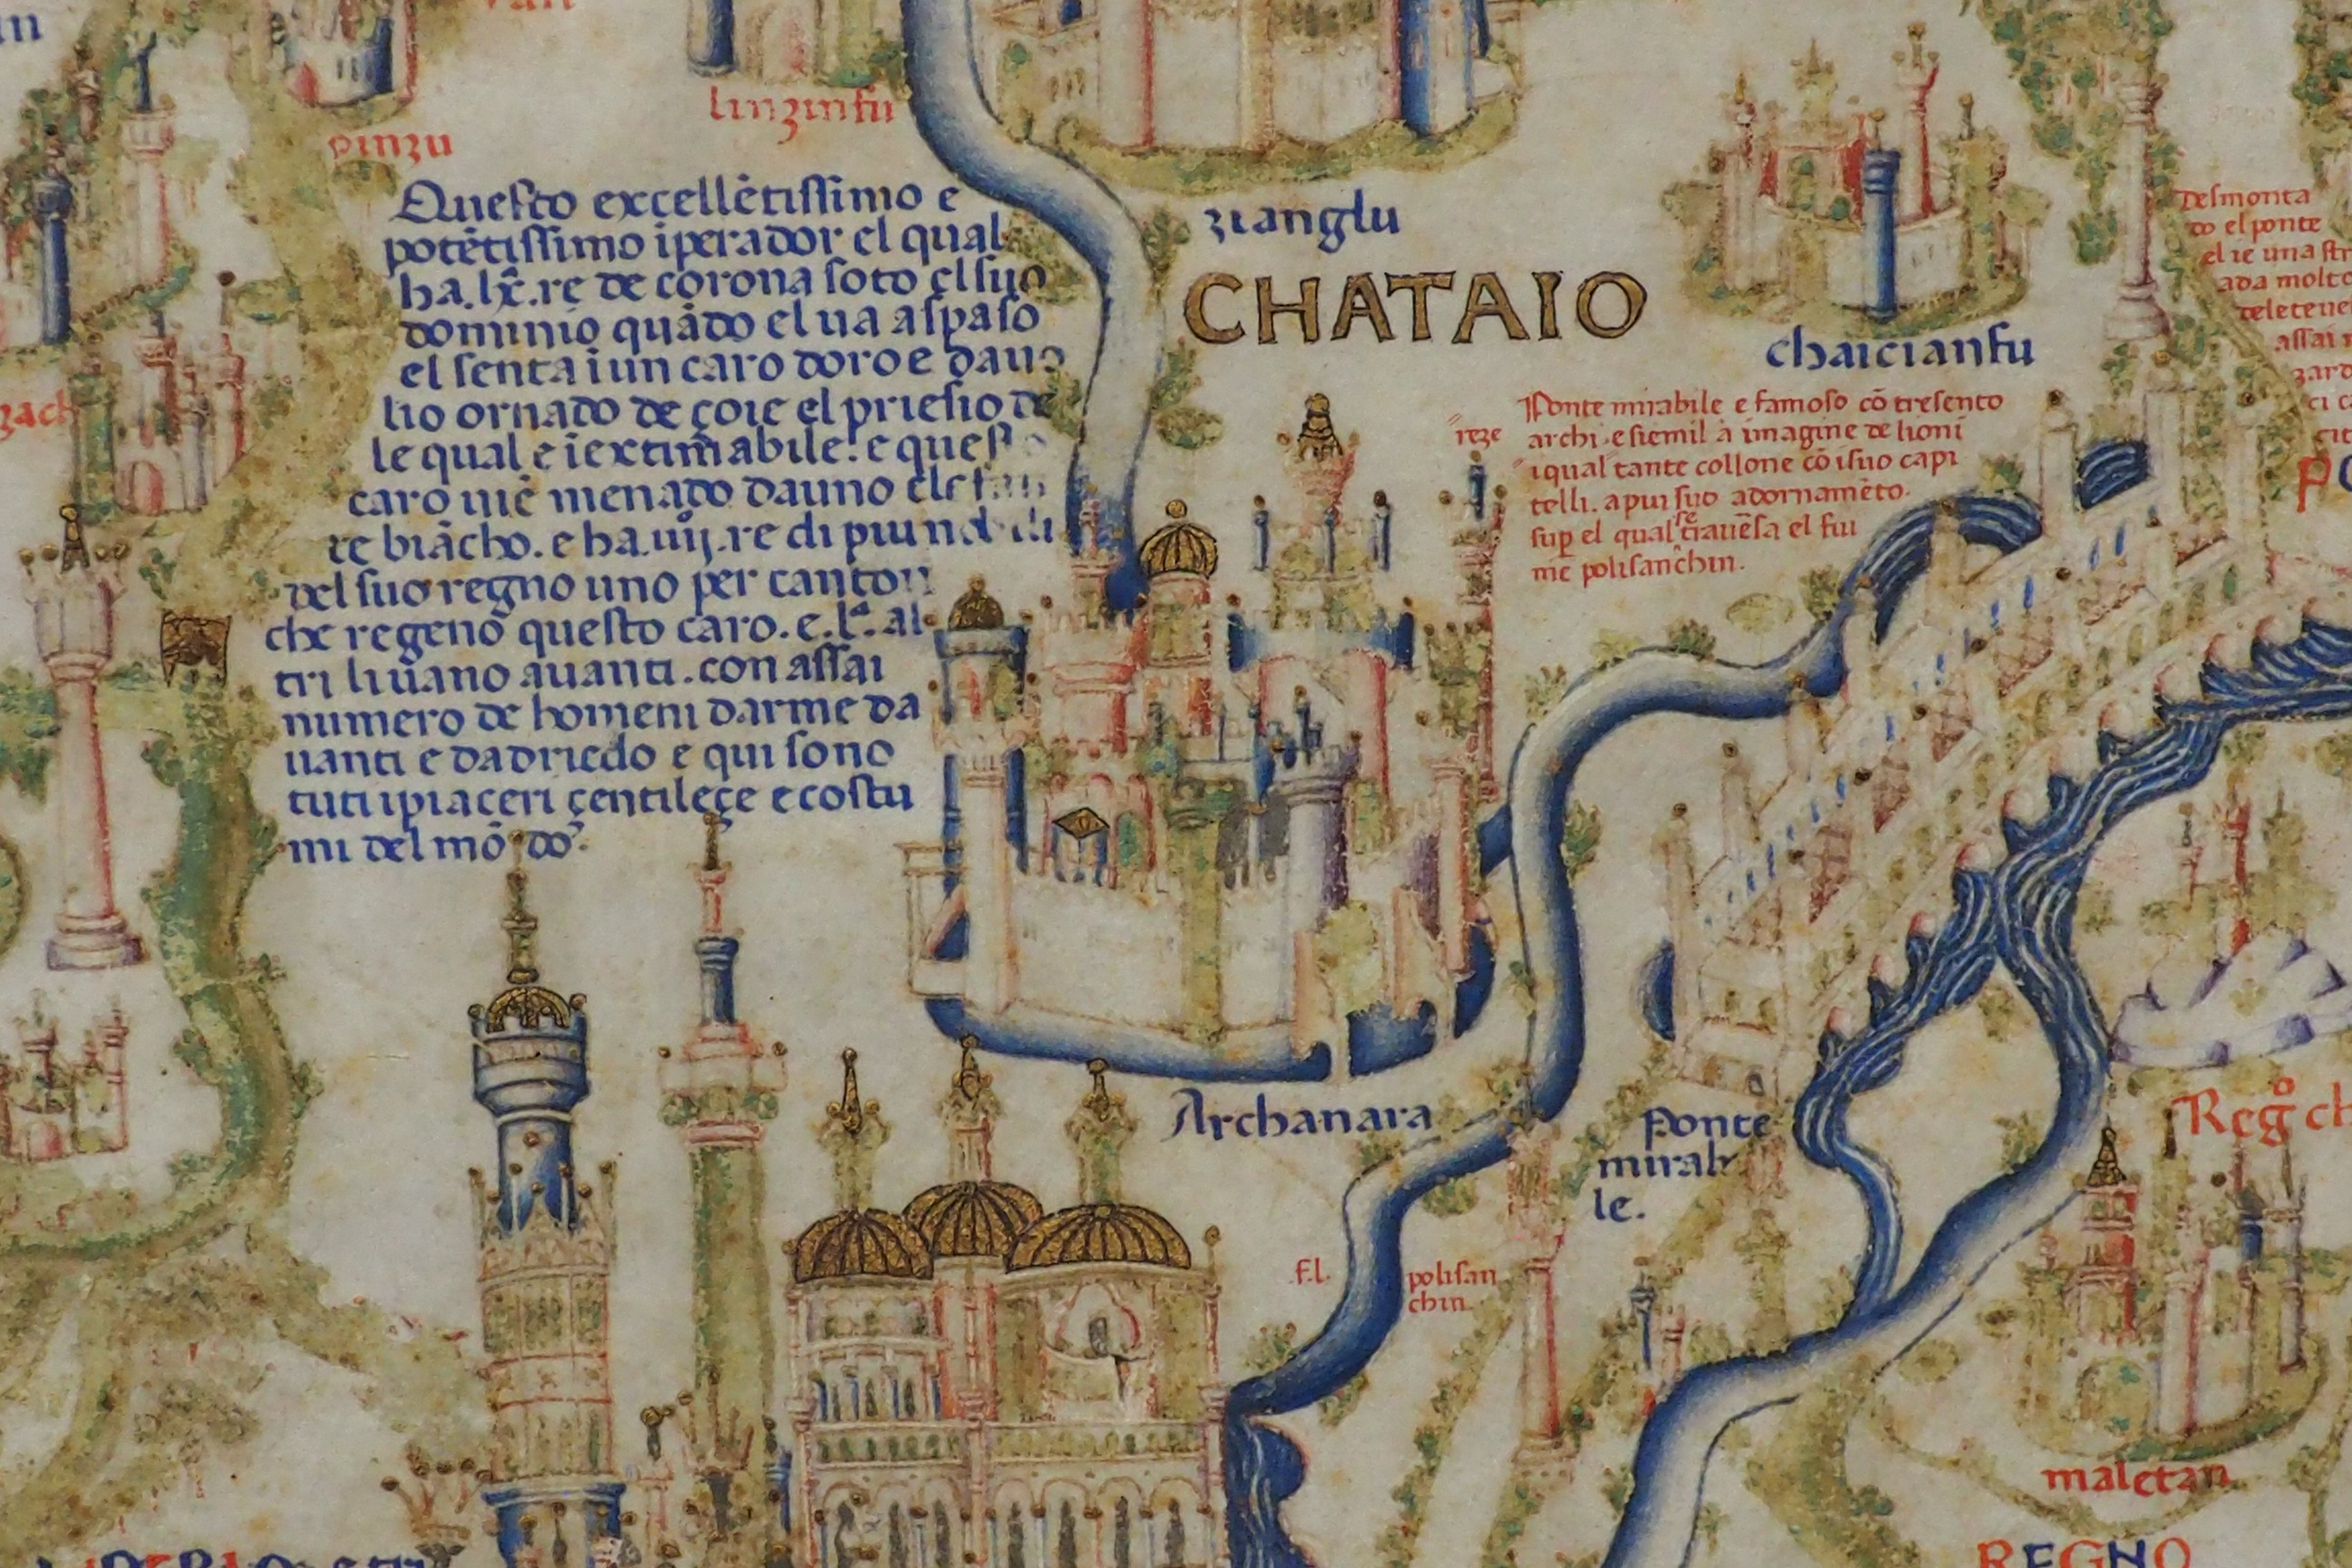 pinzu
linzinfu
Questo excellētissimo e
potētissimo īperador el qual
ha.lx̄.re de corona soto el suo
dominio quādo el ua aspaso
el senta ī un caro doro e dauo
lio ornado de çoie el priesio de
le qual e īextimabile. e questo
caro uiē menado dauno
te biācho. e ha.iiij.re di piu nobili
del suo regno uno per canton
che regeno questo caro. e. al
tri li uāno auanti. con assai
numero de homeni darme da
uanti e dadriedo e qui sono
tuti i piaceri çentileçe e costu
mi del mōdo
zianglu
CHATAIO
chaicianfu
Desmonta
do el ponte
el ie una str
ada molto
assai
Ponte mirabile e famoso cō tresento
archi e siemil a imagine de lioni
i qual tante collone cō i suo capi
telli. a pui suo adornamēto.
sup el qual se trauēsa el fiu
me polisanchin.
Archanara
Ponte
mirabi
le.
F.l. polisan
chin
Reg° ch
maletan
REGNO